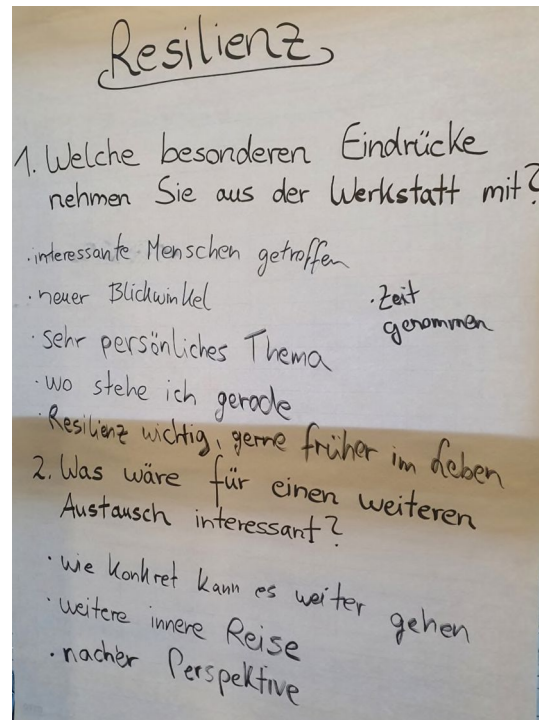 Resilienz
1. Welche besonderen Eindrücke
nehmen Sie aus der Werkstatt mit?
· interessante Menschen getroffen
· neuer Blickwinkel
· Zeit
genommen
· sehr persönliches Thema
· wo stehe ich gerade
· Resilienz wichtig, gerne früher im Leben
2. Was wäre für einen weiteren
Austausch interessant?
· wie konkret kann es weiter gehen
· weitere innere Reise
· nacher Perspektive